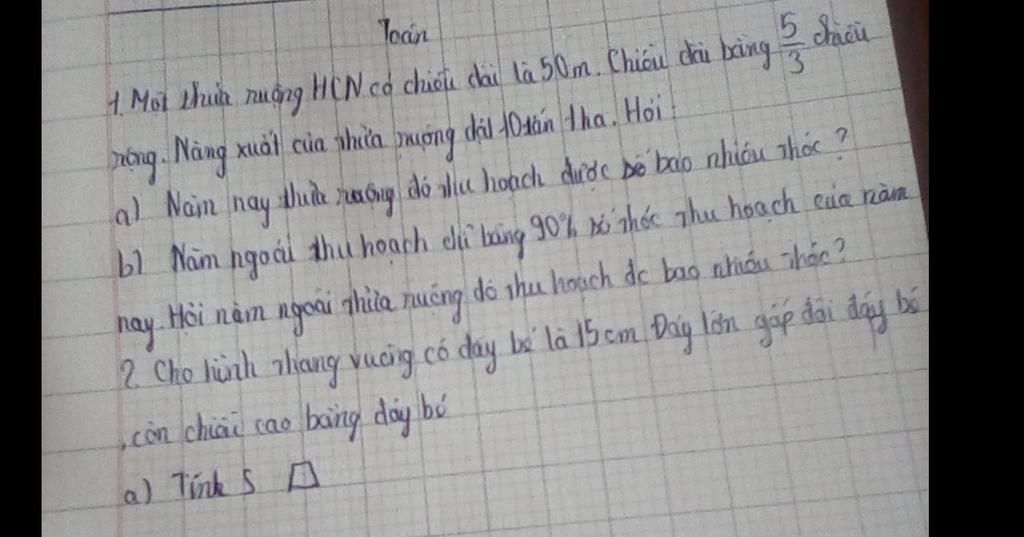 Toán
1. Một thửa ruộng HCN có chiều dài là 50m. Chiều dài bằng 5/3 chiều
rộng. Năng xuất của thửa ruộng đạt 10 tấn 1 ha. Hỏi:
a) Năm nay thửa ruộng đó thu hoạch được bao nhiêu thóc?
b) Năm ngoái thu hoạch chỉ bằng 90% số thóc thu hoạch của năm
nay. Hỏi năm ngoái thửa ruộng đó thu hoạch đc bao nhiêu thóc?
2. Cho hình thang vuông có đáy bé là 15 cm. Đáy lớn gấp đôi đáy bé
, còn chiều cao bằng đáy bé
a) Tính S